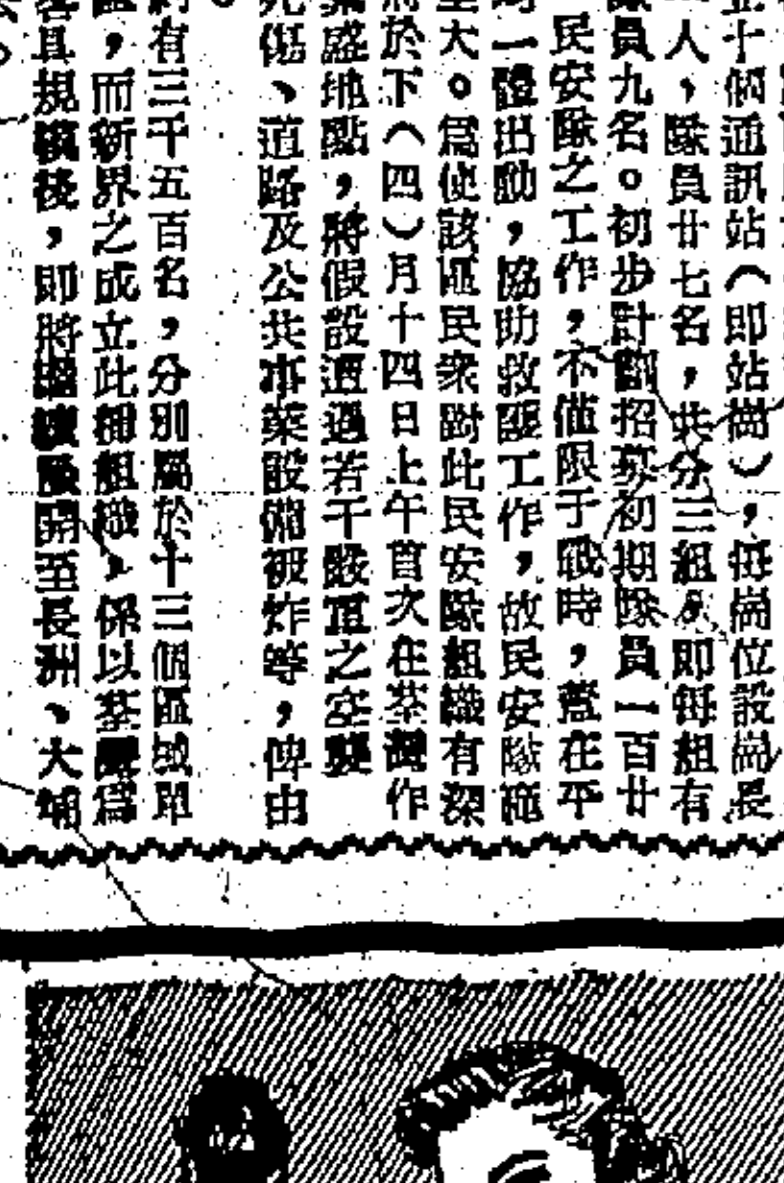 十個通訊站（即站崗），每崗位設崗長
人，隊員廿七名，共分三組，即每組有
員九名。初步計劃招募初期隊員一百廿
民安隊之工作，不僅限于戰時，舊在平
一體出動，協助救護工作，故民安隊施
大。爲使該區民衆對此民安隊組織有深
於下（四）月十四日上午首次在荃灣作
盛地點，將假設遭遇若干毀重之空襲
傷、道路及公共事業設備被炸等，俾由
有三千五百名，分別屬於十三個區域單
，而新界之成立此種組織，係以荃灣爲
具規模後，即將繼續展開至長洲、大埔